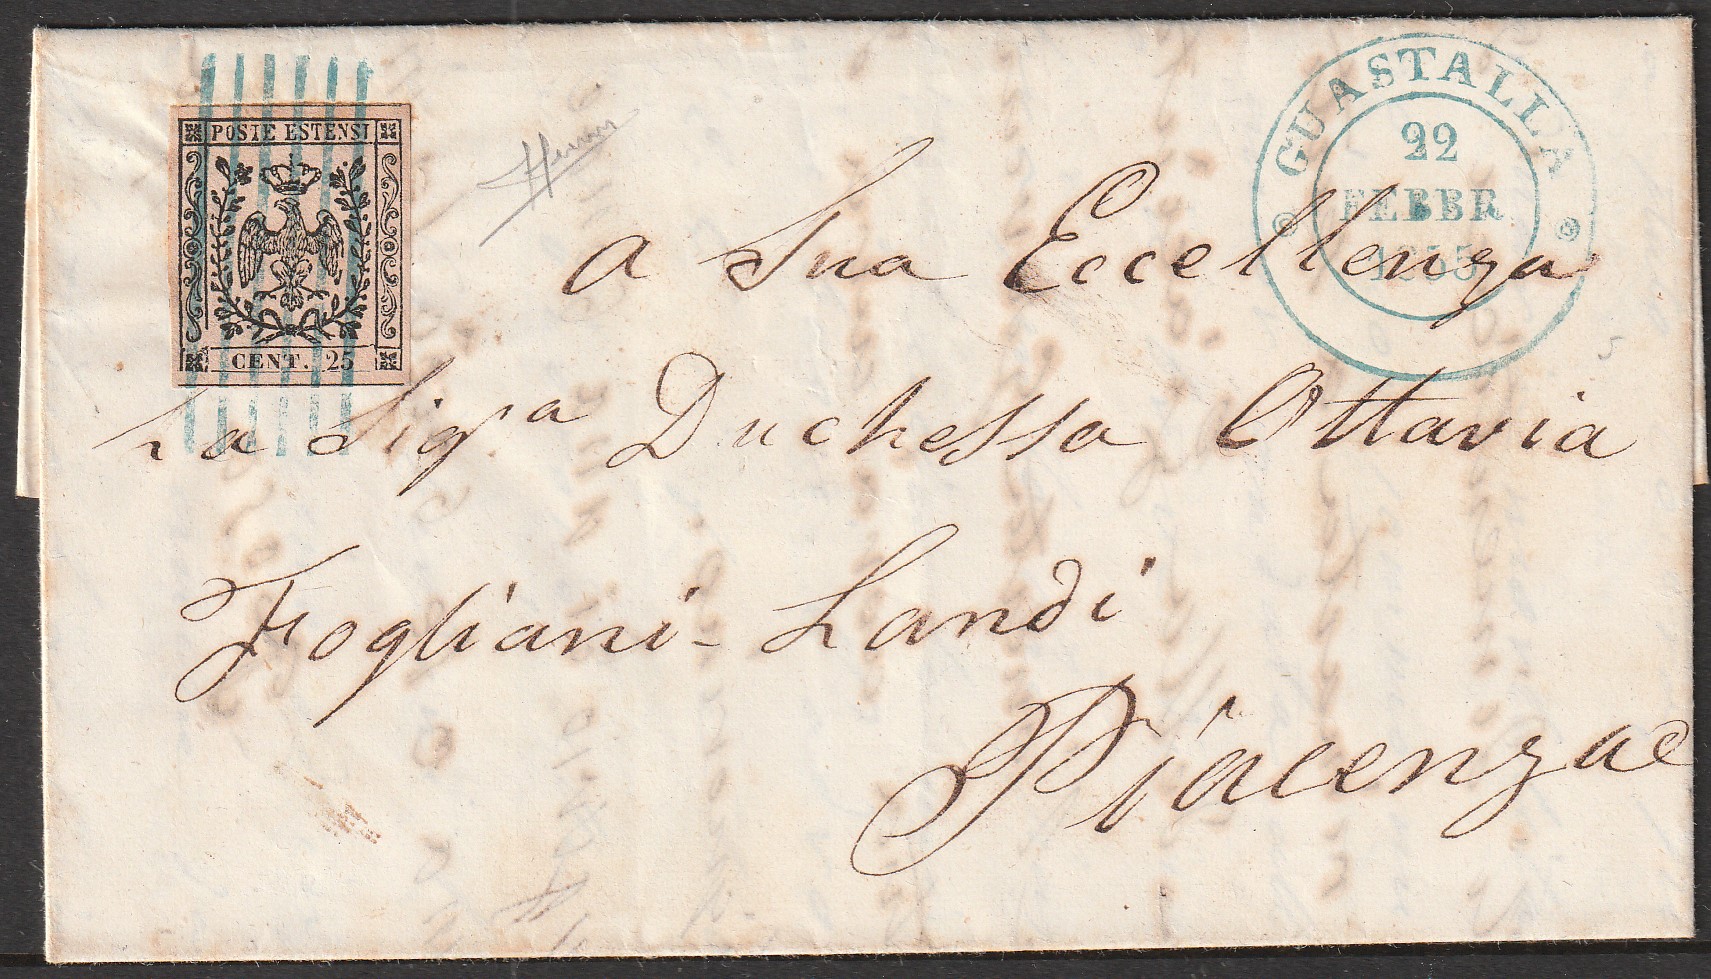 POSTE ESTENSI
CENT. 25
GUASTALLA
22
FEBBR
1855
A Sua Eccellenza
La Sigra Duchessa Ottavia
Fogliani-Landi
Piacenza